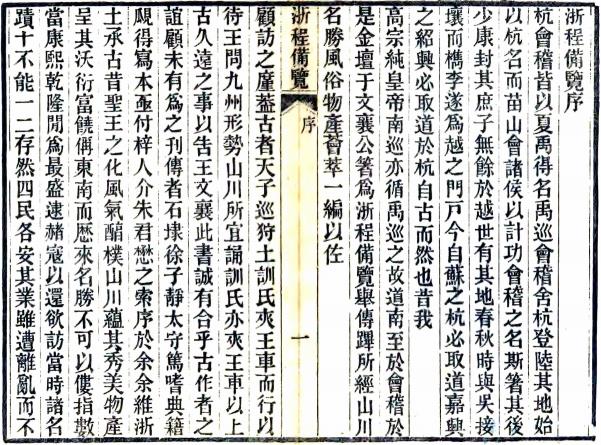 浙程備覽序
杭會稽皆以夏禹得名禹巡會稽舍杭登陸其地始
以杭名而苗山會諸侯以計功會稽之名斯箸其後
少康封其庶子無餘於越世有其地春秋時與吳接
壤而檇李遂為越之門戸今自蘇之杭必取道嘉興
之紹興必取道於杭自古而然也昔我
高宗純皇帝南巡亦循禹巡之故道南至於會稽於
是金壇于文襄公箸為浙程備覽舉傳蹕所經山川
名勝風俗物產薈萃一編以佐
浙程備覽
序
一
顧訪之廑蓋古者天子巡狩土訓氏夾王車而行以
待王問九州形勢山川所宜誦訓氏亦夾王車以上
古久遠之事以告王文襄此書誠有合乎古作者之
誼顧未有為之刊傳者石埭徐子靜太守篤嗜典籍
覼得寫本亟付梓人介朱君懋之索序於余余維浙
土承古昔聖王之化風氣醕樸山川蘊其秀美物產
呈其沃衍富饒偁東南而歷來名勝不可以僂指數
當康熙乾隆閒為最盛逮赭寇以還欲訪當時諸名
蹟十不能一二存然四民各安其業雖遭離亂而不